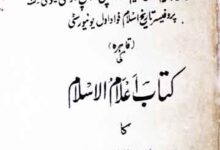 پروفیسر تاریخ اسلام فواد اول یونیورسٹی
(قاہرہ)
کی
کتاب اعلام الاسلام
کا